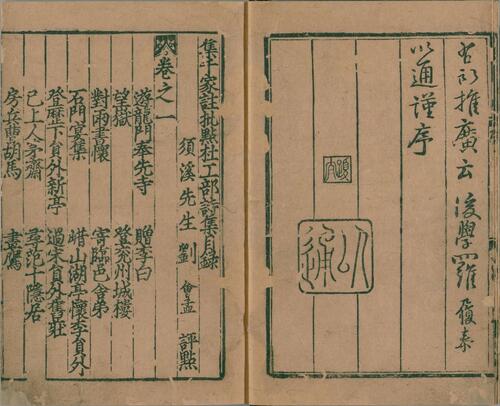 推廣云後學羅履泰
以通謹序
以通
集千家註批點杜工部詩集目錄
須溪先生劉 會孟 評點
卷之一
遊龍門奉先寺 贈李白
望嶽 登兗州城樓
對雨書懷 寄臨邑舍弟
石門宴集 㟙山湖亭懷李員外
登歷下員外新亭 過宋員外舊莊
已上人茅齋 尋范十隱居
房兵曹胡馬 畫鷹